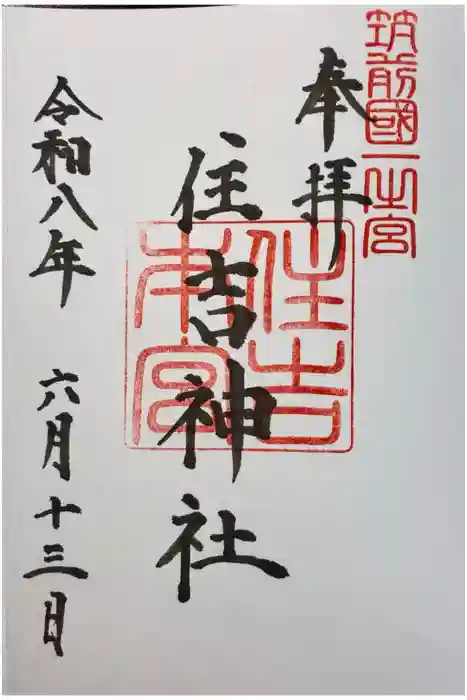 筑前國一之宮
奉拝
住吉神社
住吉本宮
令和八年 六月十三日